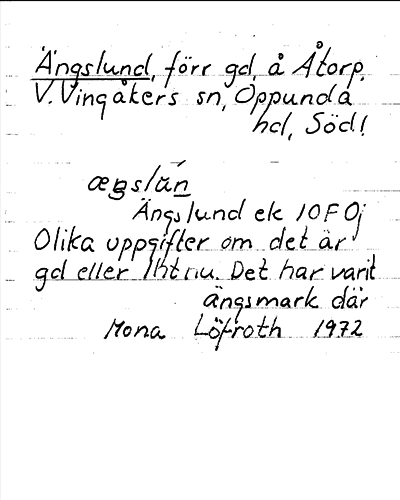 Ängslund, förr gd, å Åtorp,
V. Vingåkers sn, Oppunda
hd, Söd!
Ängslund ek 10F 0j
Olika uppgifter om det är
gd eller lht nu. Det har varit
ängsmark där
Mona Löfroth 1972